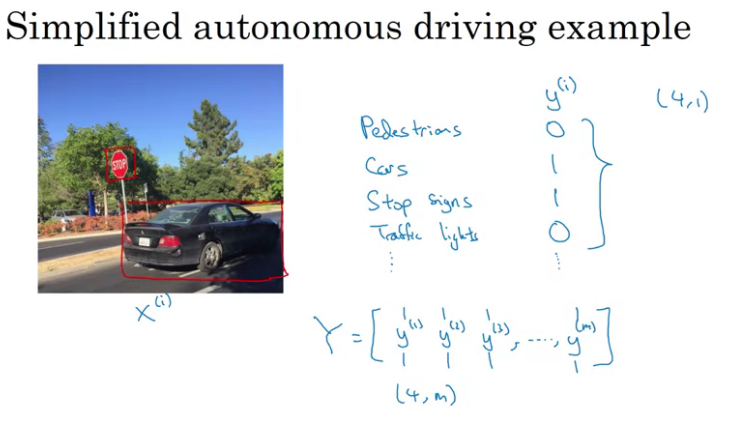 Simplified autonomous driving example
STOP
y^(i) (4,1)
Pedestrians 0
Cars 1
Stop signs 1
Traffic lights 0
⋮ ⋮
x^(i)
Y = [ y^(1) y^(2) y^(3) , ...., y^(m) ]
(4, m)